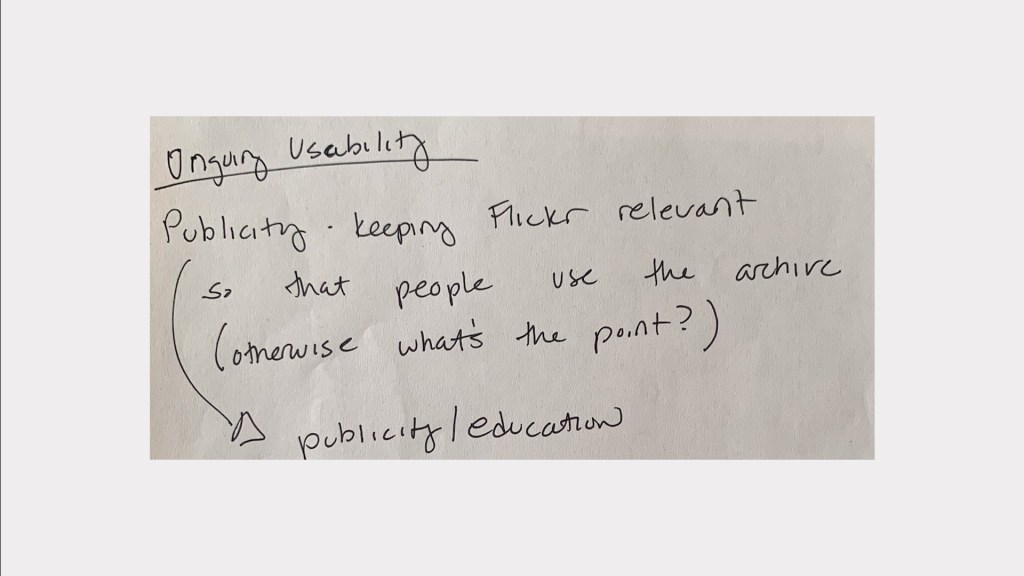 Ongoing Usability
Publicity · keeping Flickr relevant
so that people use the archive
(otherwise what's the point?)
publicity/education